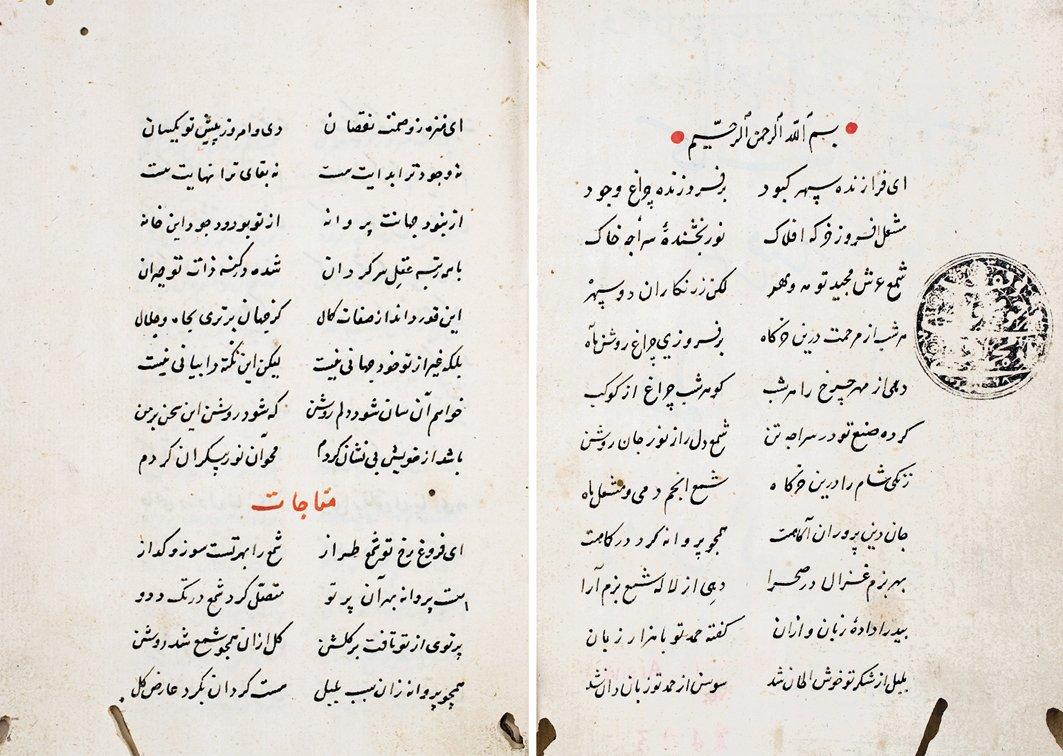 بسم الله الرحمن الرحیم
ای فرازنده سپهر کبود برفروزنده چراغ وجود
مشعل افروز خرکه افلاک نور بخشندهٔ سراجه خاک
شمع عرش مجید تو مه و مهر لکن زرنکاران دو سپهر
هر شب از مرحمت درین خرکاه برفروزی چراغ روشن ماه
دهی از مهر چرخ را هر شب کوهر شب چراغ از کوکب
کرده صنع تو در سراجه تن شمع دل را ز نور جان روشن
زنکی شام را درین خرکاه شمع انجم دهی و مشعل ماه
جان دین پروران آکاهت همچو پروانه کرد درکاهت
بهر بزم غزال در صحرا دهی از لاله شمع بزم آرا
بید را دادهٔ زبان و ازان کفته حمد تو با هزار زبان
بلبل از شکر تو خوش الحان شد سوسن از حمد تو زبان دان شد
ای منزه ز وصمت نقصان دی و امروز پیش تو یکسان
نه وجود ترا بدایت هست نه بقای ترا نهایت هست
از تو بود وجود این خانه
با همه رتبه عقل سرکردان شده در کنه ذات تو حیران
این قدر داند از صفات کمال کز جهان برتری بجاه و جلال
بلکه غیر از تو خود جهانی نیست لیکن این نکته را بیانی نیست
خواهم آن سان شود دلم روشن که شود روشن این سخن بر من
باشد از خویش بی نشان کردم محو آن نور بیکران کردم
مناجات
ای فروغ رخ تو شمع طراز شمع را مهر تست سوز و کداز
هست پروانه بهر آن پرتو متصل کرد شمع در تک و دو
پرتوی از تو تافت بر کلشن کل ازان همچو شمع شد روشن
همچو پروانه زان سبب بلبل هست کردان بکرد عارض کل